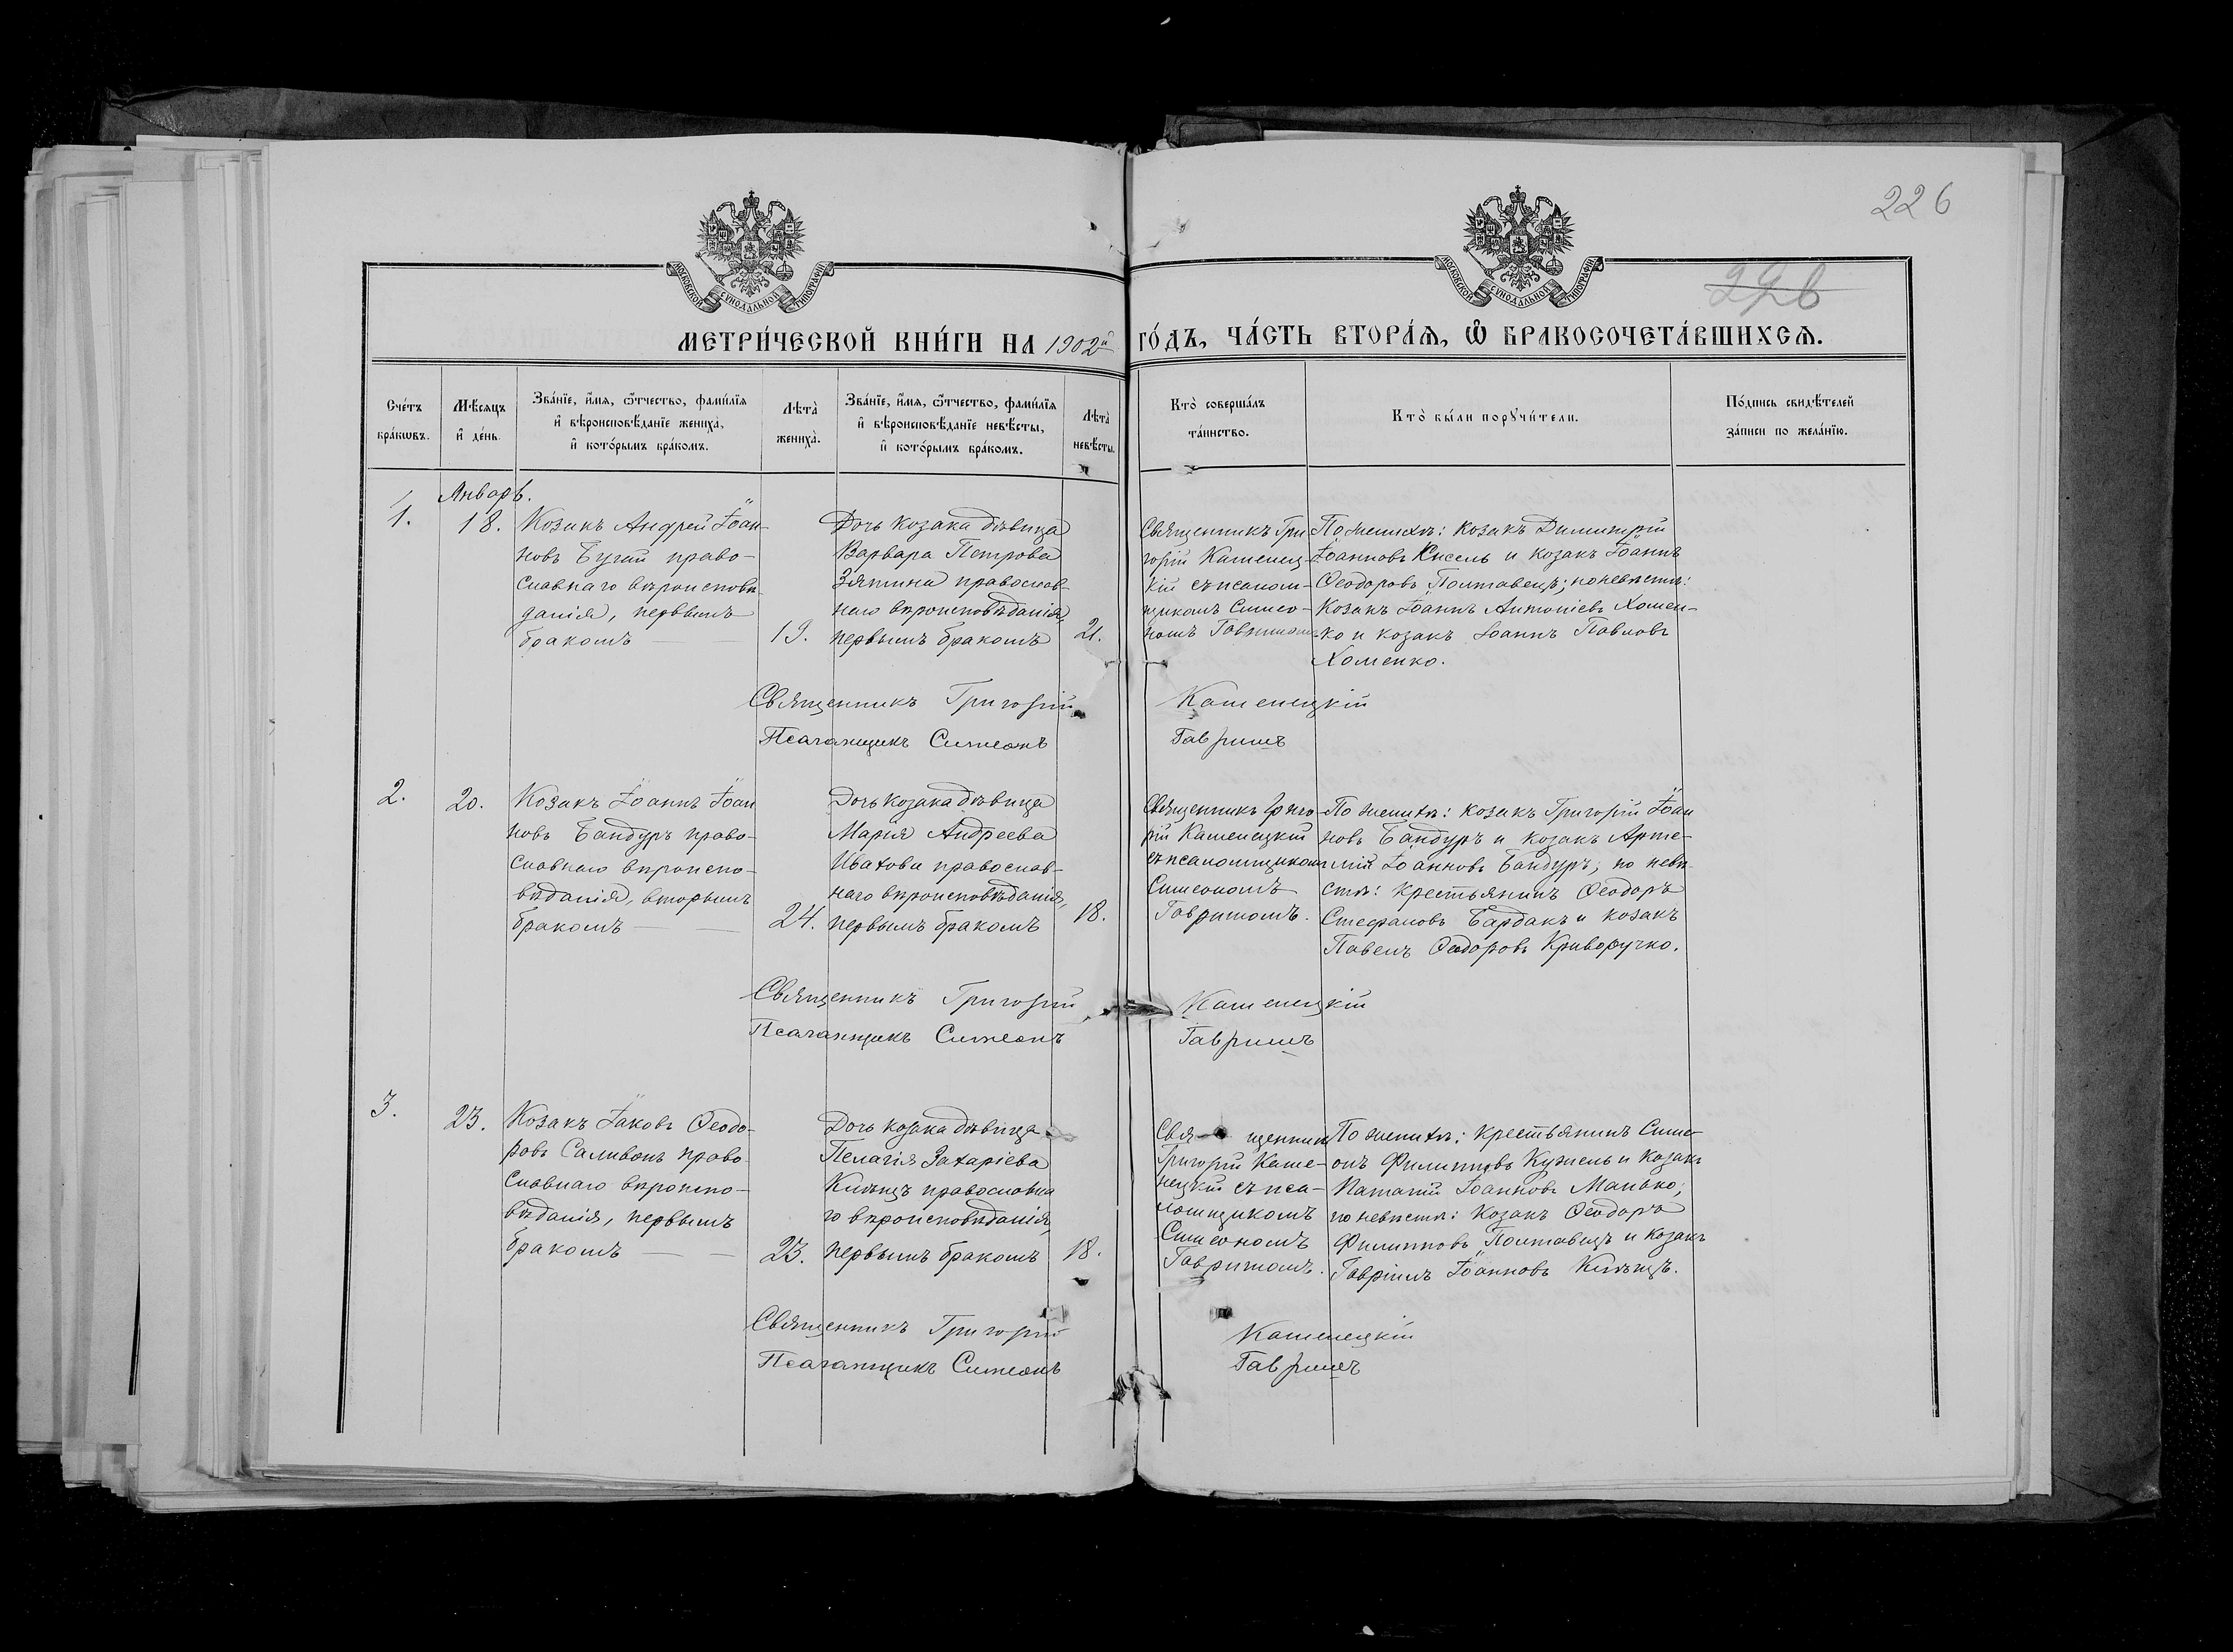 226
226
МОСКОВСКОЙ СѴНОДАЛЬНОЙ ТИПОГРАФІИ
МОСКОВСКОЙ СѴНОДАЛЬНОЙ ТИПОГРАФІИ
МЕТРИ́ЧЕСКОЙ КНИ́ГИ НА 1902й ГО́ДЪ, ЧА́СТЬ ВТОРА́Ѧ, Ѽ БРАКОСОЧЕТА́ВШИХСѦ.
Сче́тъ
бра́кѡвъ.
Мѣ́сяцъ
и҆ де́нь.
Зва́нїе, и҆́мѧ, ѻ҆́тчество, фами́лїѧ
и҆ вѣроисповѣ́данїе жениха̀,
и҆ кото́рымъ бра́комъ.
Лѣта̀
жениха̀.
Зва́нїе, и҆́мѧ, ѻ҆́тчество, фами́лїѧ
и҆ вѣроисповѣ́данїе невѣ́сты,
и҆ кото́рымъ бра́комъ.
Лѣта̀
невѣ́сты.
Кто̀ соверша́лъ
та́инство.
Кто̀ бы́ли порꙋчи́тели.
По́дпись свидѣ́телей
за́писи по жела́нїю.
Январь.
1.
18.
Козакъ Андрей Іоан-
новъ Бугай право-
славнаго вѣроисповѣ-
данія, первымъ
бракомъ
19.
Дочь козака дѣвица
Варвара Петрова
Зятина православ-
наго вѣроисповѣданія,
первымъ бракомъ
21.
Священникъ Гри
горій Каменец-
кій съ псалом-
щикомъ Симео-
номъ Гавришомъ
По женихѣ: козакъ Димитрій
Іоанновъ Кисель и козакъ Іоаннъ
Ѳеодоровъ Полтавецъ; по невѣстѣ:
козакъ Іоаннъ Антоніевъ Хомен-
ко и козакъ Іоаннъ Павловъ
Хоменко.
Священникъ Григорій Каменецкій
Псаломщикъ Симеонъ Гавришъ
2.
20.
Козакъ Іоаннъ Іоан
новъ Бандуръ право-
славнаго вѣроиспо-
вѣданія, вторымъ
бракомъ
24.
Дочь козака дѣвица
Марія Андреева
Ивахова православ-
наго вѣроисповѣданія,
первымъ бракомъ
18.
Священникъ Григо-
рій Каменецкій
съ псаломщикомъ
Симеономъ
Гавришомъ.
По женихѣ: козакъ Григорій Іоан
новъ Бандуръ и козакъ Арте-
мій Іоанновъ Бандуръ; по невѣ-
стѣ: крестьянинъ Ѳеодоръ
Стефановъ Бардакъ и козакъ
Павелъ Ѳеодоровъ Криворучко.
Священникъ Григорій Каменецкій
Псаломщикъ Симеонъ Гавришъ
3.
23.
Козакъ Іаковъ Ѳеодо-
ровъ Саливонъ право-
славнаго вѣроиспо-
вѣданія, первымъ
бракомъ
23.
Дочь козака дѣвица
Пелагія Захаріева
православна
го вѣроисповѣданія,
первымъ бракомъ
18.
Священникъ
Григорій Каме-
нецкій съ пса-
ломщикомъ
Симеономъ
Гавришомъ.
По женихѣ: крестьянинъ Симе-
онъ Филипповъ Кужель и козакъ
Ипатій Іоанновъ Манько;
по невѣстѣ: козакъ Ѳеодоръ
Филипповъ Полтавецъ и козакъ
Гавріилъ Іоанновъ
Священникъ Григорій Каменецкій
Псаломщикъ Симеонъ Гавришъ